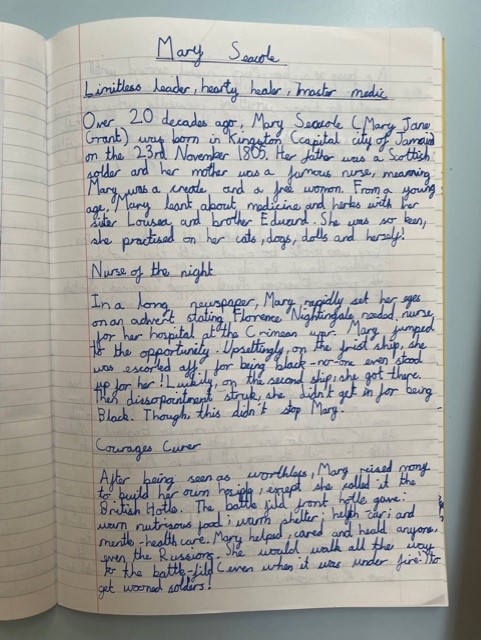 Mary Seacole
Limitless leader, hearty healer, master medic
Over 20 decades ago, Mary Seacole (Mary Jane
Grant) was born in Kingston (capital city of Jamaid
on the 23rd November 1805. Her father was a Scottish
solder and her mother was a famous nurse, meaning
Mary was a creole and a free womon. From a young
age, Mary leant about medicine and herbs with her
sister Lousea and brother Eduard. She was so keen,
she practised on her cats, dogs, dolls and herself!
Nurse of the night
In a long newspaper, Mary rapidly set her eyes
on an advert stating Florence Nightingale needed nurse,
for her hospital at the Crimean war. Mary jumped
to the opportunity. Upsettingly, on the frist ship, she
was escorled off, for being black-no-one even stood
up for her! Lukily, on the second ship, she got there.
Then dissopointment struk, she didn't get in for being
Black. Though, this didn't stop Mary.
Courages Curer
After being seen as worthless, Mary reised mony
to build her own, except she called it the
British Hotle. The battle fild front hotle gave:
warn nutrisous food; warm shelter; helth car; and
mentle-health care. Mary helped, cared and heald anyone,
even the Russions. She would walk all the way
to the battle-fild (even when it was under fire!) to
get wooned solders!